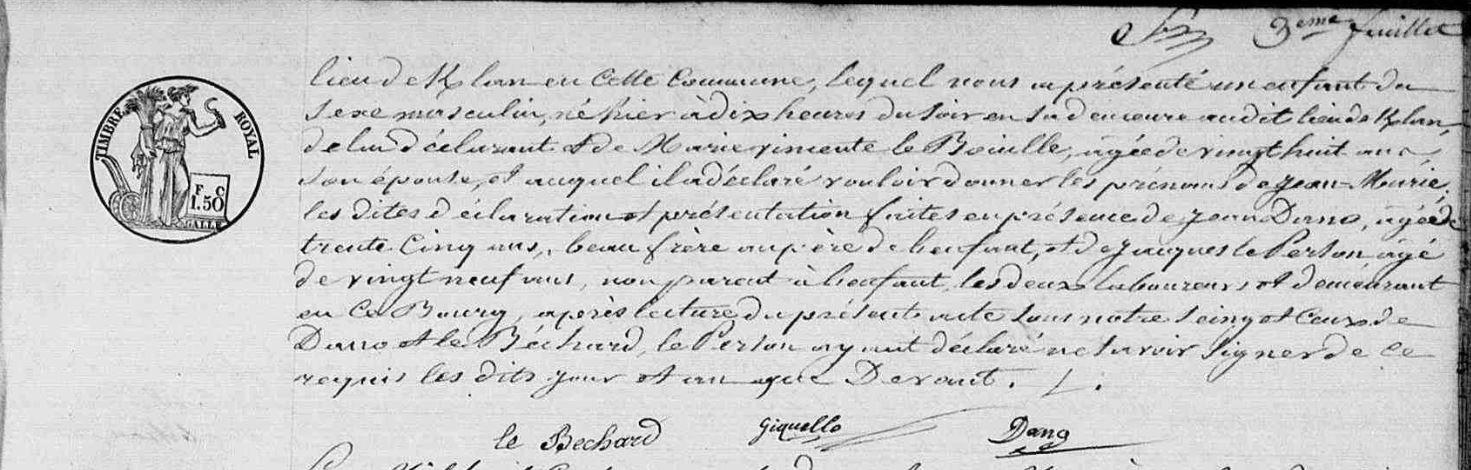 3eme feuillet
lieu de Klan en Cette Commune, lequel nous a présenté un enfant du
Sexe masculin, né hier à dix heures du Soir en sa demeure audit lieu de Klan,
de lui déclarant et de Marie vincente le Boville, agée de vingt huit ans,
Son épouse, et auquel il a déclaré vouloir donner les prénoms de Jean-Marie.
les dites déclaration et présentation faites en présence de Jean Dano, agé de
trente Cinq ans, beau frère au père de l'enfant, et de Jacques le Person agé
de vingt neuf ans, non parent à l'enfant, les deux laboureurs et demeurant
en Ce Bourg, après lecture du présent acte sous notre Seing et Ceux de
Dano et le Béchard, le Person ayant déclaré ne Savoir Signer de Ce
requis les dits jour et an que Devant.
le Bechard Giquello Dano
TIMBRE ROYAL
F. C
1.50